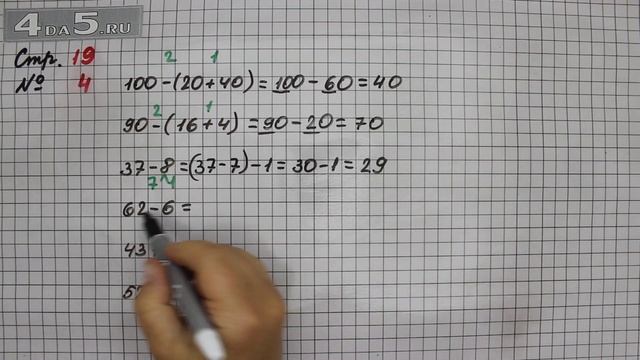 4DA5.RU
Стр. 19
№ 4
2 1
100-(20+40)=100-60=40
2 1
90-(16+4)=90-20=70
37-8=(37-7)-1=30-1=29
7 1
62-6=
43
5